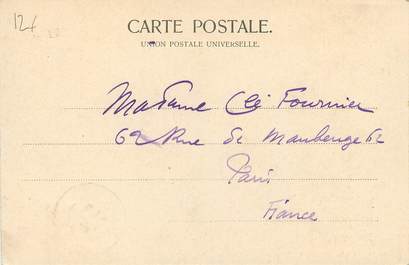 12f
CARTE POSTALE.
UNION POSTALE UNIVERSELLE.
Madame Clé Fournier
62 Rue de Maubeuge 62
Paris
France